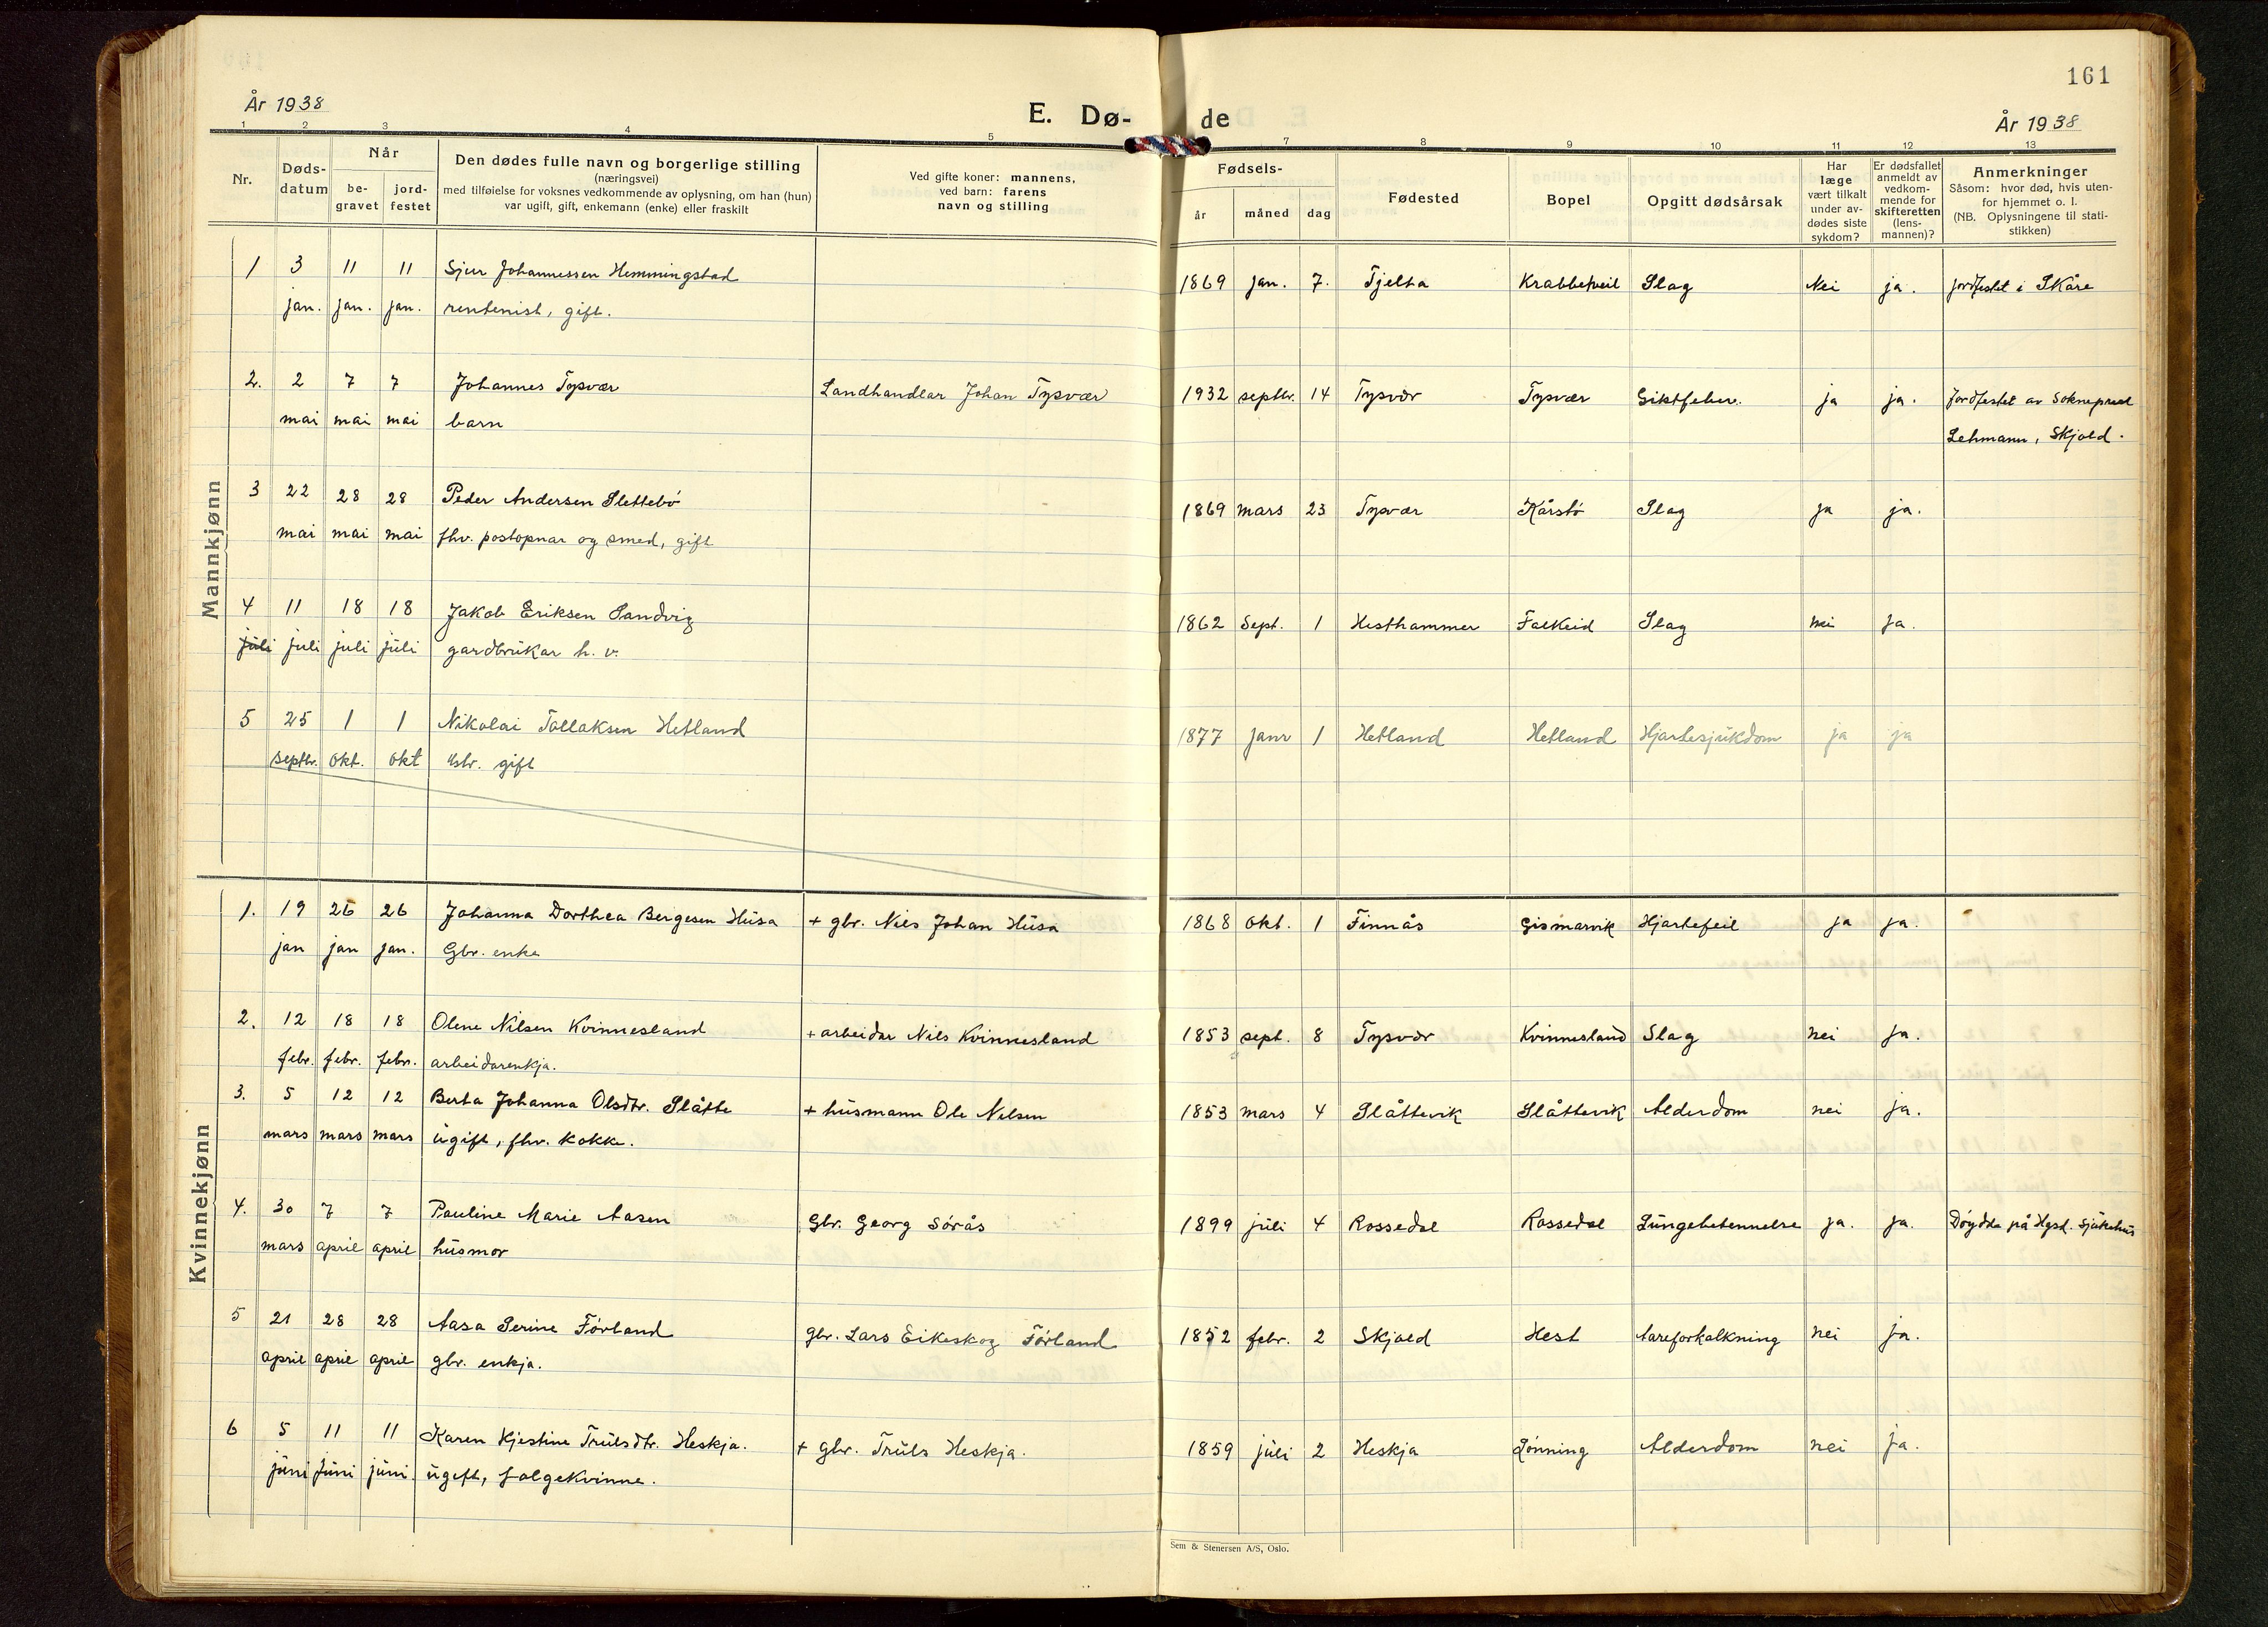 161
År 1938
E. Dø-
de
År 1938
1 2 3 4 5 7 8 9 10 11 12 13
Nr.
Døds-
datum
Når
be-
gravet
jord-
festet
Den dødes fulle navn og borgerlige stilling
(næringsvei)
med tilføielse for voksnes vedkommende av oplysning, om han (hun)
var ugift, gift, enkemann (enke) eller fraskilt
Ved gifte koner: mannens,
ved barn: farens
navn og stilling
Fødsels-
år måned dag
Fødested
Bopel
Opgitt dødsårsak
Har
læge
vært tilkalt
under av-
dødes siste
sykdom?
Er dødsfallet
anmeldt av
vedkom-
mende for
skifteretten
(lens-
mannen)?
Anmerkninger
Såsom: hvor død, hvis uten-
for hjemmet o. l.
(NB. Oplysningene til stati-
stikken)
Mannkjønn
1 3 11 11 Sjur Johannessen Hemmingstad 1869 jan. 7. Tjelta Krabbetveit Slag Nei ja. jordfestet i Skåre
jan. jan. jan. rentenist, gift.
2. 2 7 7 Johannes Tysvær Landhandlar Johan Tysvær 1932 septbr. 14 Tysvær Tysvær Giktfeber. ja ja. Jordfestet av Sokneprest
mai mai mai barn Lehmann, Skjold.
3 22 28 28 Peder Andersen Slettebø 1869 mars 23 Tysvær Kårstø Slag ja ja.
mai mai mai fhv. postopnar og smed, gift
4 11 18 18 Jakob Eriksen Sandvig 1862 Sept. 1 Hesthammer Falkeid Slag nei ja.
juli juli juli juli gardbrukar h. v.
5 25 1 1 Nikolai Tollaksen Hetland 1877 janr 1 Hetland Hetland Hjartesjukdom ja ja
septbr. okt. okt gift
Kvinnekjønn
1. 19 26 26 Johanna Dorthea Bergesen Husa + gbr. Nils Johan Husa 1868 okt. 1 Finnås Gismarvik Hjartefeil ja ja.
jan jan jan. Gbr. enke
2. 12 18 18 Olene Nilsen Kvinnesland + arbeidar Nils Kvinnesland 1853 sept. 8 Tysvær Kvinnesland Slag nei ja.
febr. febr. febr. arbeidarenkja.
3. 5 12 12 Berta Johanna Olsdtr. Slåtte + husmann Ole Nilsen 1853 mars 4 Slåttevik Slåttevik Alderdom nei ja.
mars mars mars ugift, fhv. kokke.
4. 30 7 7 Pauline Marie Aasen Gbr. Georg Sørås 1899 juli 4 Rossedal Rossedal Lungebetennelse ja. ja. Døydde på Hgsd. sjukehus
mars april april husmor
5 21 28 28 Aasa Serine Førland gbr. Lars Eikeskog Førland 1852 febr. 2 Skjold Hest Aareforkalkning nei ja.
april april april gbr. enkja.
6 5 11 11 Karen Kjestine Trulsdtr. Heskja. + gbr. Truls Heskja. 1859 juli 2 Heskja Lønning Alderdom nei ja.
juni juni juni ugift, folgekvinne.
Sem & Stenersen A/S, Oslo.